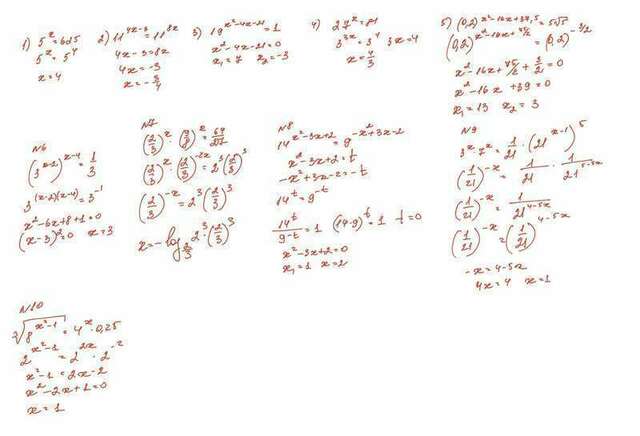 1) 5^x = 625
5^x = 5^4
x = 4
2) 11^(4x-3) = 11^(8x)
4x - 3 = 8x
4x = -3
x = -3/4
3) 19^(x²-4x-21) = 1
x² - 4x - 21 = 0
x₁ = 7 x₂ = -3
4) 27^x = 81
3^(3x) = 3^4 3x = 4
x = 4/3
5) (0,2)^(x²-16x+37,5) = 5√5
(0,2)^(x²-16x+75/2) = (0,2)^(-3/2)
x² - 16x + 75/2 + 3/2 = 0
x² - 16x + 39 = 0
x₁ = 13 x₂ = 3
N6
(3^(x-2))^(x-4) = 1/3
3^((x-2)(x-4)) = 3^(-1)
x² - 6x + 8 + 1 = 0
(x-3)² = 0 x = 3
N7
(2/3)^x · (3/8)^x = 64/27
(2/3)^(-x) = 2³ (2/3)³
N8
14^(x²-3x+2) = 9^(-x²+3x-2)
x² - 3x + 2 = t
-x² + 3x - 2 = -t
14^t = 9^(-t)
14^t / 9^(-t) = 1 (14·9)^t = 1 t = 0
x² - 3x + 2 = 0
x₁ = 1 x = 2
N9
3^x · 7^x = 1/21 · (21^(x-1))^5
(1/21)^(-x) = 1/21 · 1/21^(5-5x)
(1/21)^(-x) = 1/21^(4-5x)
(1/21)^(-x) = (1/21)^(4-5x)
-x = 4 - 5x
4x = 4 x = 1
N10
∛(8^(x²-1)) = 4^x · 0,25
2^(x²-1) = 2^(2x) · 2^(-2)
x² - 1 = 2x - 2
x² - 2x + 1 = 0
x = 1